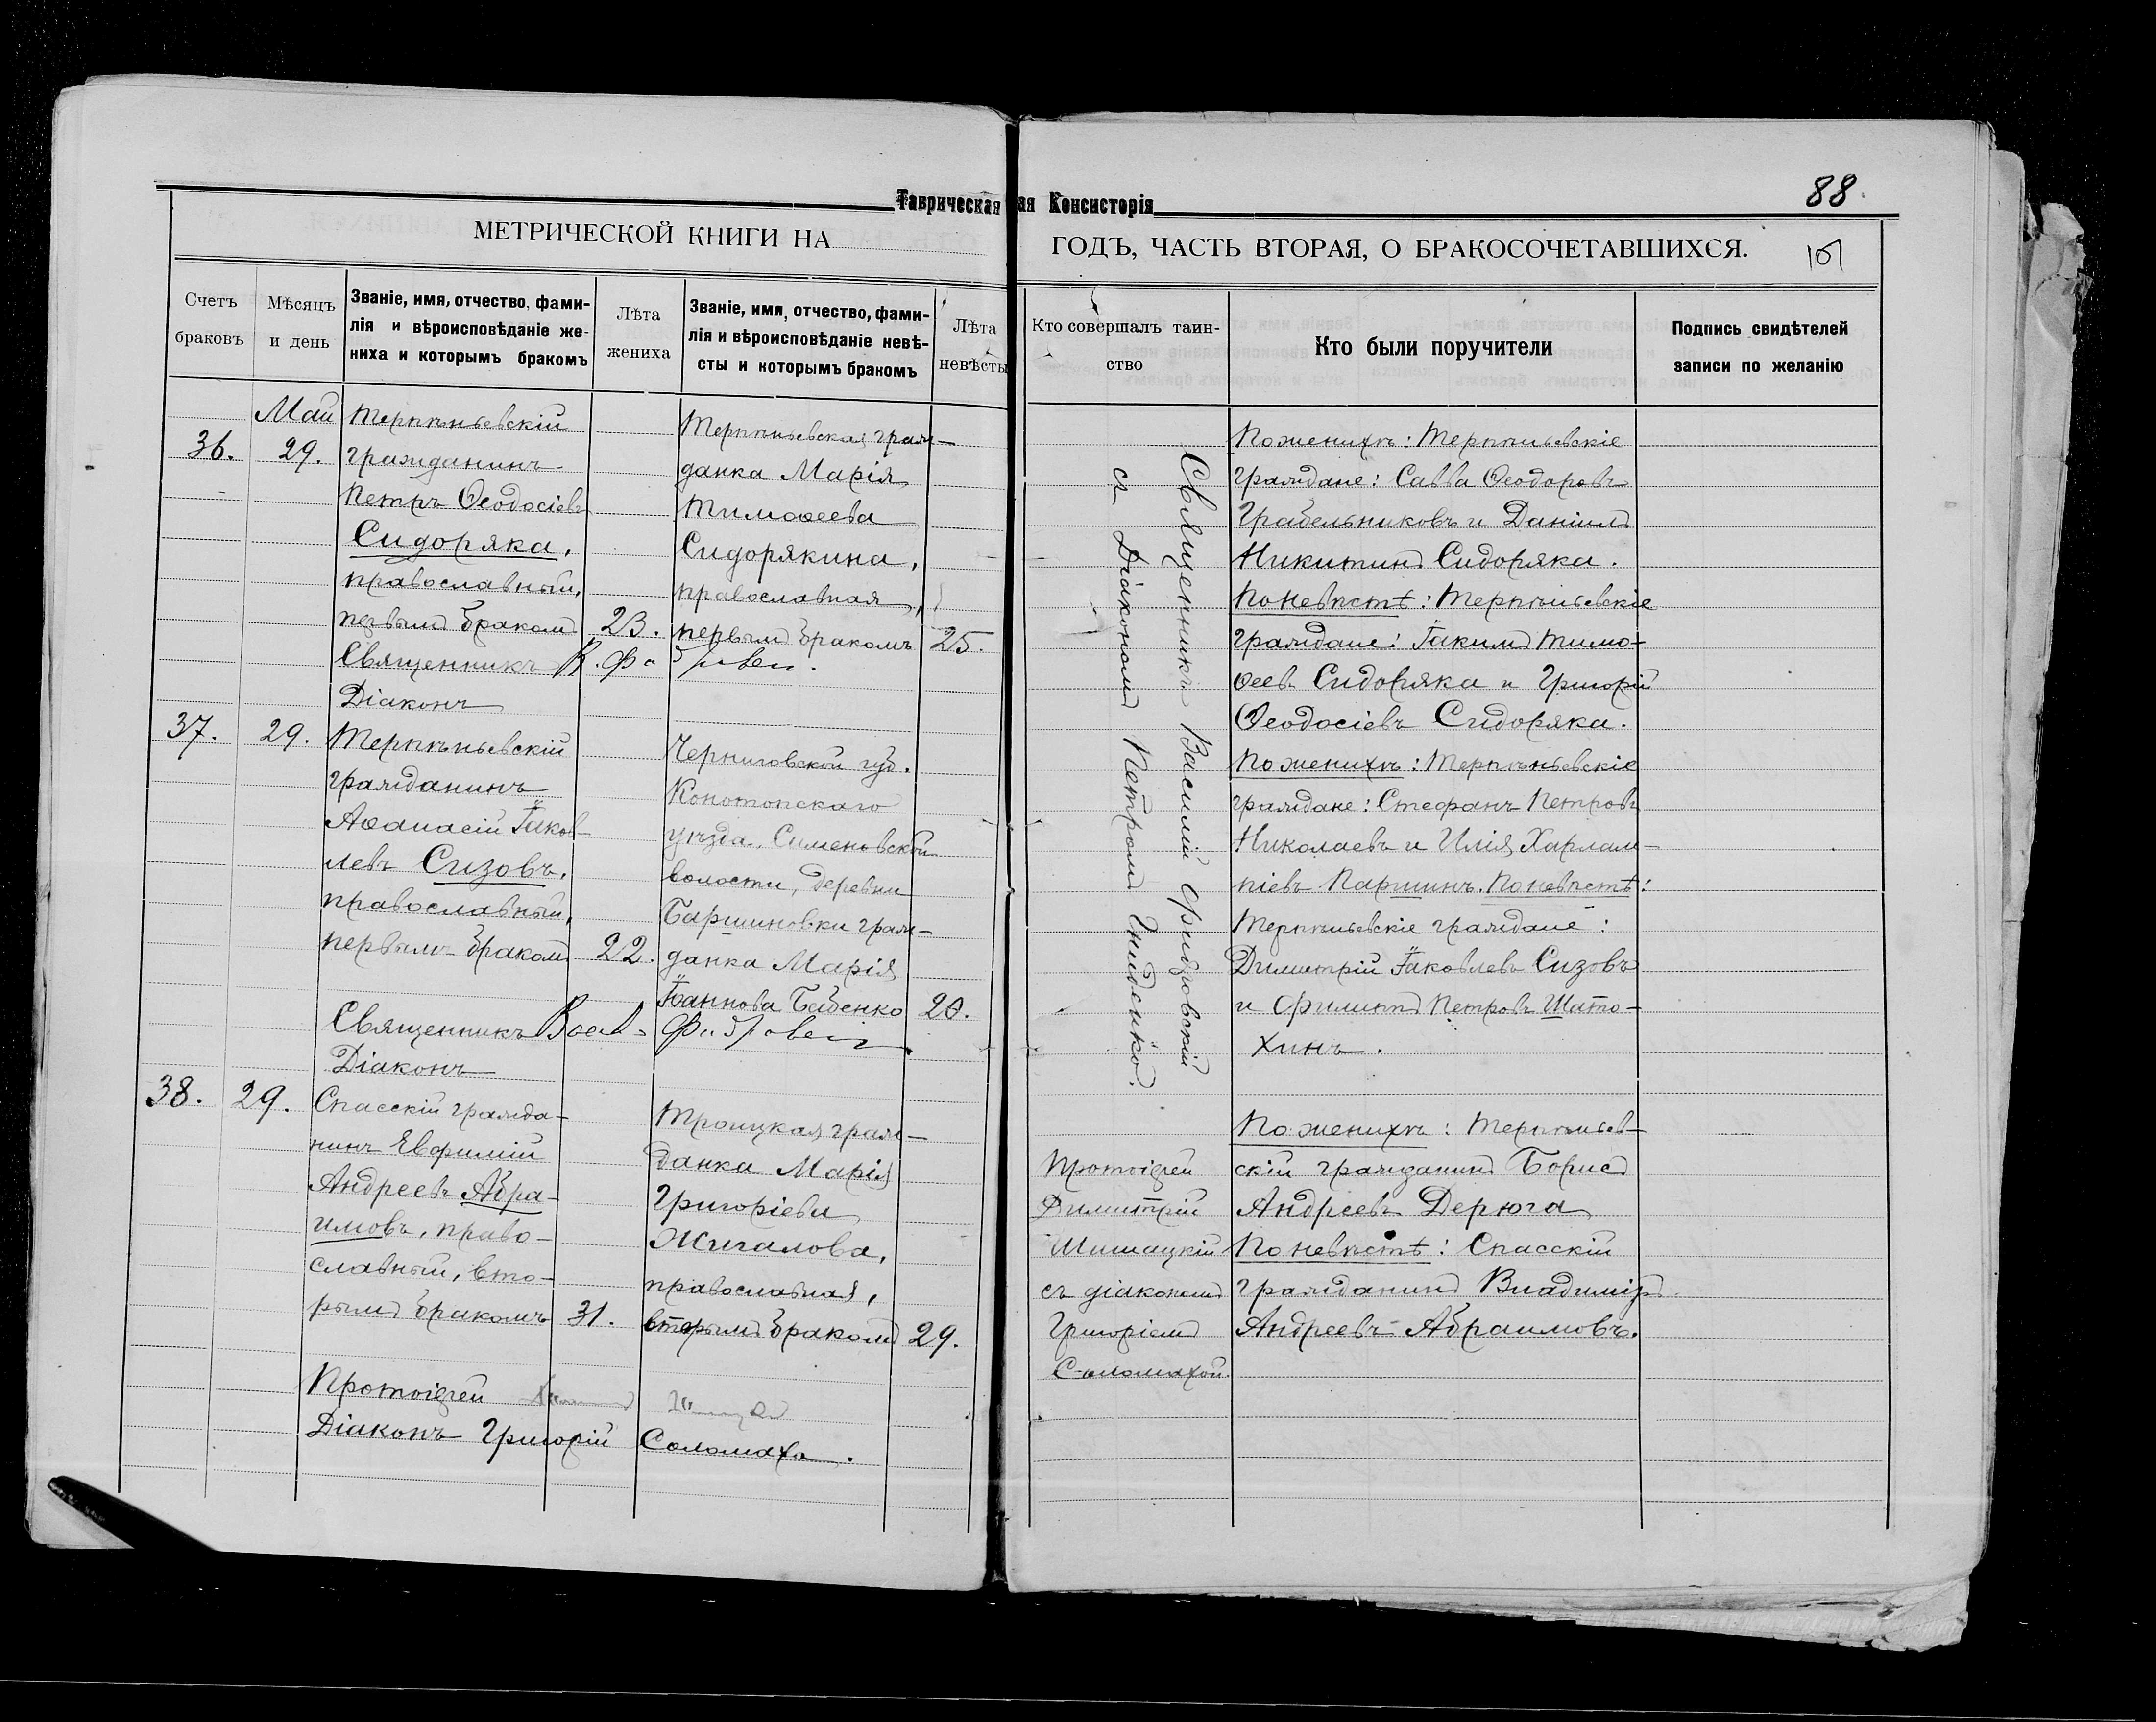 Таврическая
ая Консисторія
88.
МЕТРИЧЕСКОЙ КНИГИ НА
ГОДЪ, ЧАСТЬ ВТОРАЯ, О БРАКОСОЧЕТАВШИХСЯ.
Счетъ
браковъ
Мѣсяцъ
и день
Званіе, имя, отчество, фами-
лія и вѣроисповѣданіе же-
ниха и которымъ бракомъ
Лѣта
жениха
Званіе, имя, отчество, фами-
лія и вѣроисповѣданіе невѣ-
сты и которымъ бракомъ
Лѣта
невѣсты
Кто совершалъ таин-
ство
Кто были поручители
Подпись свидѣтелей
записи по желанію
Май
36.
29.
Терпѣньевскій
гражданинъ
Петръ Ѳеодосіевъ
Сидоряка,
православный,
первымъ бракомъ
23.
Терпѣньевская граж-
данка Марія
Тимоѳеева
Сидорякина,
православная,
первымъ бракомъ
25.
Священникъ В.
Діаконъ
Священникъ Василій Фридговскій
съ Діакономъ Петромъ Гниденко.
По женихѣ: Терпѣньевскіе
граждане: Савва Ѳеодоровъ
Грабельниковъ и Даніилъ
Никитинъ Сидоряка.
По невѣстѣ: Терпѣньевскіе
граждане: Іакимъ Тимо-
ѳеевъ Сидоряка и Григорій
Ѳеодосіевъ Сидоряка.
37.
29.
Терпѣньевскій
гражданинъ
Аѳанасій Іаков-
левъ Сизовъ,
православный,
первымъ бракомъ
22.
Черниговской губ.
Конотопскаго
уѣзда, Сименовской
волости, деревни
Баршиновки граж-
данка Марія
Іоаннова Бабенко
20.
Священникъ
Діаконъ
По женихѣ: Терпѣньевскіе
граждане: Стефанъ Петровъ
Николаевъ и Илія Харлам-
піевъ Паршинъ. По невѣстѣ:
Терпѣньевскіе граждане:
Димитрій Іаковлевъ Сизовъ
и Филиппъ Петровъ Шато-
хинъ.
38.
29.
Спасскій гражда-
нинъ Евфимій
Андреевъ Абра-
имовъ, право-
славный, вто-
рымъ бракомъ
31.
Троицкая граж-
данка Марія
Григоріева
Жигалова,
православная,
вторымъ бракомъ
29.
Протоіерей
Діаконъ Григорій Соломаха.
Протоіерей
Димитрій
Шишацкій
съ діакономъ
Григоріемъ
Соломахой.
По женихѣ: Терпѣньев-
скій гражданинъ Борисъ
Андреевъ Дерюга
По невѣстѣ: Спасскій
гражданинъ Владиміръ
Андреевъ Абраимовъ.